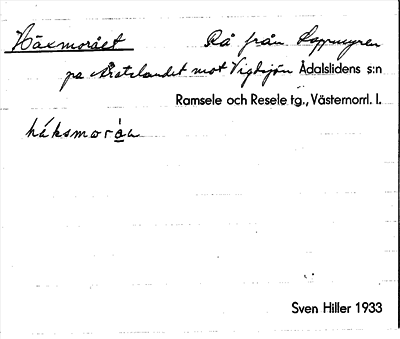 Häxmorået Rå från Lappmyren
på Årstelandet mot Vigdsjön Ådalslidens s:n
Ramsele och Resele tg., Västernorrl. l.
háksmoròa
Sven Hiller 1933